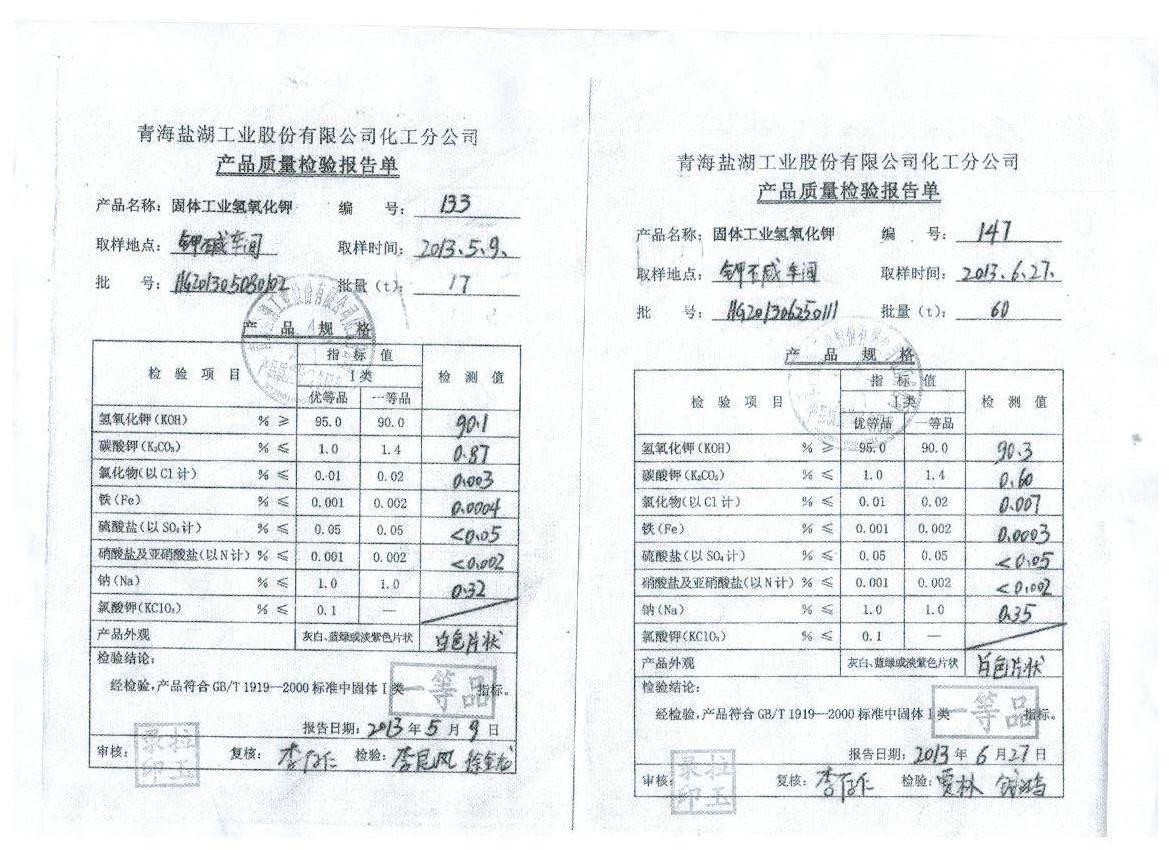 青海盐湖工业股份有限公司化工分公司
产品质量检验报告单
产品名称：固体工业氢氧化钾 编 号：133
取样地点：钾碱车间 取样时间：2013.5.9.
批 号：HG201305080102 批量（t）：17
产 品 规 格
检 验 项 目 指 标 值 检 测 值
I类
优等品 一等品
氢氧化钾(KOH) % ≥ 95.0 90.0 90.1
碳酸钾(K₂CO₃) % ≤ 1.0 1.4 0.87
氯化物(以Cl计) % ≤ 0.01 0.02 0.003
铁(Fe) % ≤ 0.001 0.002 0.0004
硫酸盐(以SO₄计) % ≤ 0.05 0.05 <0.05
硝酸盐及亚硝酸盐(以N计) % ≤ 0.001 0.002 <0.002
钠(Na) % ≤ 1.0 1.0 0.32
氯酸钾(KClO₃) % ≤ 0.1 —
产品外观 灰白、蓝绿或淡紫色片状 白色片状
检验结论：
经检验,产品符合GB/T 1919—2000标准中固体I类 一等品 指标。
报告日期：2013年5月9日
审核： 复核： 检验：
青海盐湖工业股份有限公司化工分公司
产品质量检验报告单
产品名称：固体工业氢氧化钾 编 号：147
取样地点：钾碱车间 取样时间：2013.6.27.
批 号：HG201306250111 批量（t）：60
产 品 规 格
检 验 项 目 指 标 值 检 测 值
I类
优等品 一等品
氢氧化钾(KOH) % ≥ 95.0 90.0 90.3
碳酸钾(K₂CO₃) % ≤ 1.0 1.4 0.60
氯化物(以Cl计) % ≤ 0.01 0.02 0.007
铁(Fe) % ≤ 0.001 0.002 0.0003
硫酸盐(以SO₄计) % ≤ 0.05 0.05 <0.05
硝酸盐及亚硝酸盐(以N计) % ≤ 0.001 0.002 <0.002
钠(Na) % ≤ 1.0 1.0 0.35
氯酸钾(KClO₃) % ≤ 0.1 —
产品外观 灰白、蓝绿或淡紫色片状 白色片状
检验结论：
经检验,产品符合GB/T 1919—2000标准中固体I类 一等品 指标。
报告日期：2013年6月27日
审核： 复核： 检验：